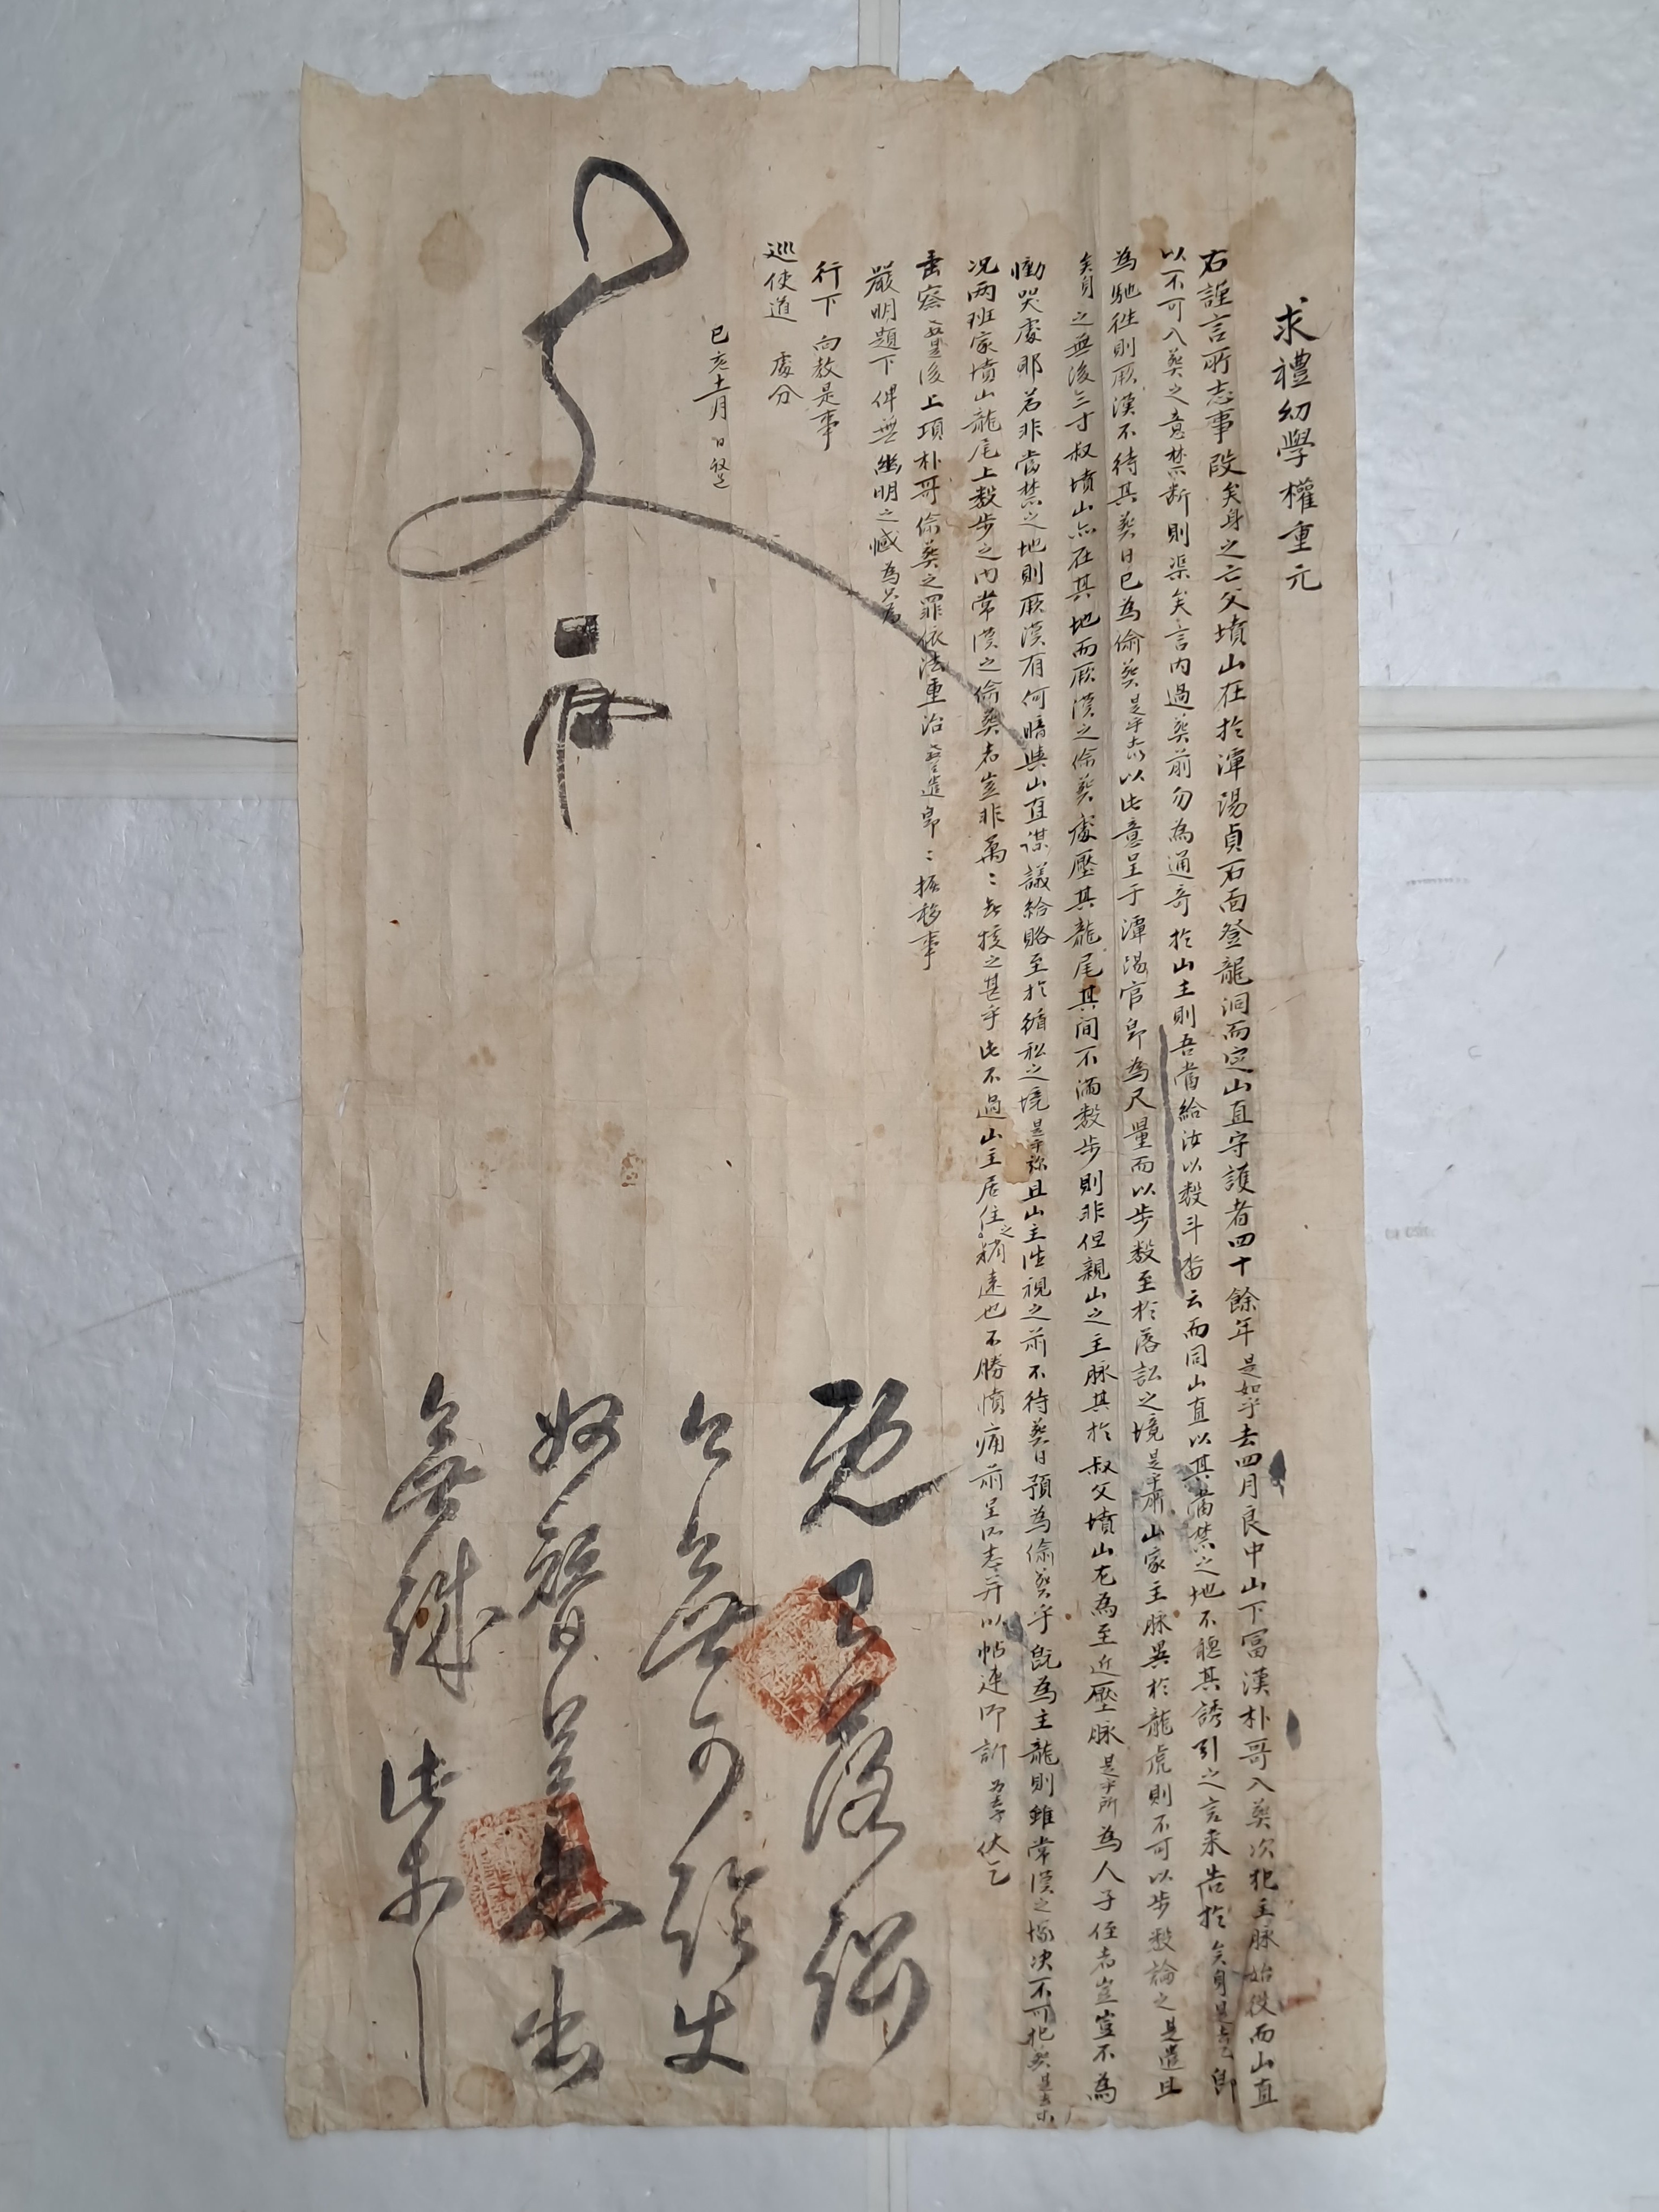 求禮幼學權重元
右謹言所志事段矣身之亡父墳山在於潭陽貞石面登龍洞而定山直守護者四十餘年是如乎去四月良中山下富漢朴哥入葬次犯主脉始役而山直
以不可入葬之意禁斷則渠矣言內過葬前勿為通奇於山主則吾當給汝以數斗畓云而同山直以其當禁之地不聽其誘引之言來告於矣身是去乙卽
為馳徃則厥漢不待其葬日已為偷葬是乎所以此意呈于潭陽官卽為尺量而以步數至於落訟之境是乎所山家主脉異於龍虎則不可以步數論之是遣且
矣身之無後三寸叔墳山亦在其地而厥漢之偷葬處壓其龍尾其間不滿數步則非但親山之主脉其於叔父墳山尤為至近壓脉是乎所為人子侄者豈豈不為
慟哭處耶若非當禁之地則厥漢有何暗與山直謀議給賂至於循私之境是乎旀且山主徃視之前不待葬日預為偷葬乎旣為主龍則雖常漢之塚决不可犯葬是去等
况两班家墳山龍尾上數步之內常漢之偷葬者豈非萬〻無據之甚乎此不過山主居住之稍遠也不勝憤痛前呈所志幷以帖連仰訴為去乎伏乞
垂察敎是後上項朴哥偷葬之罪依法重治敎是遣卽〻掘移事
嚴明題下俾無幽明之憾為只為
行下向敎是事
巡使道 處分
己亥十一月 日 狀
旣已落訟
今無可
更呈
此事